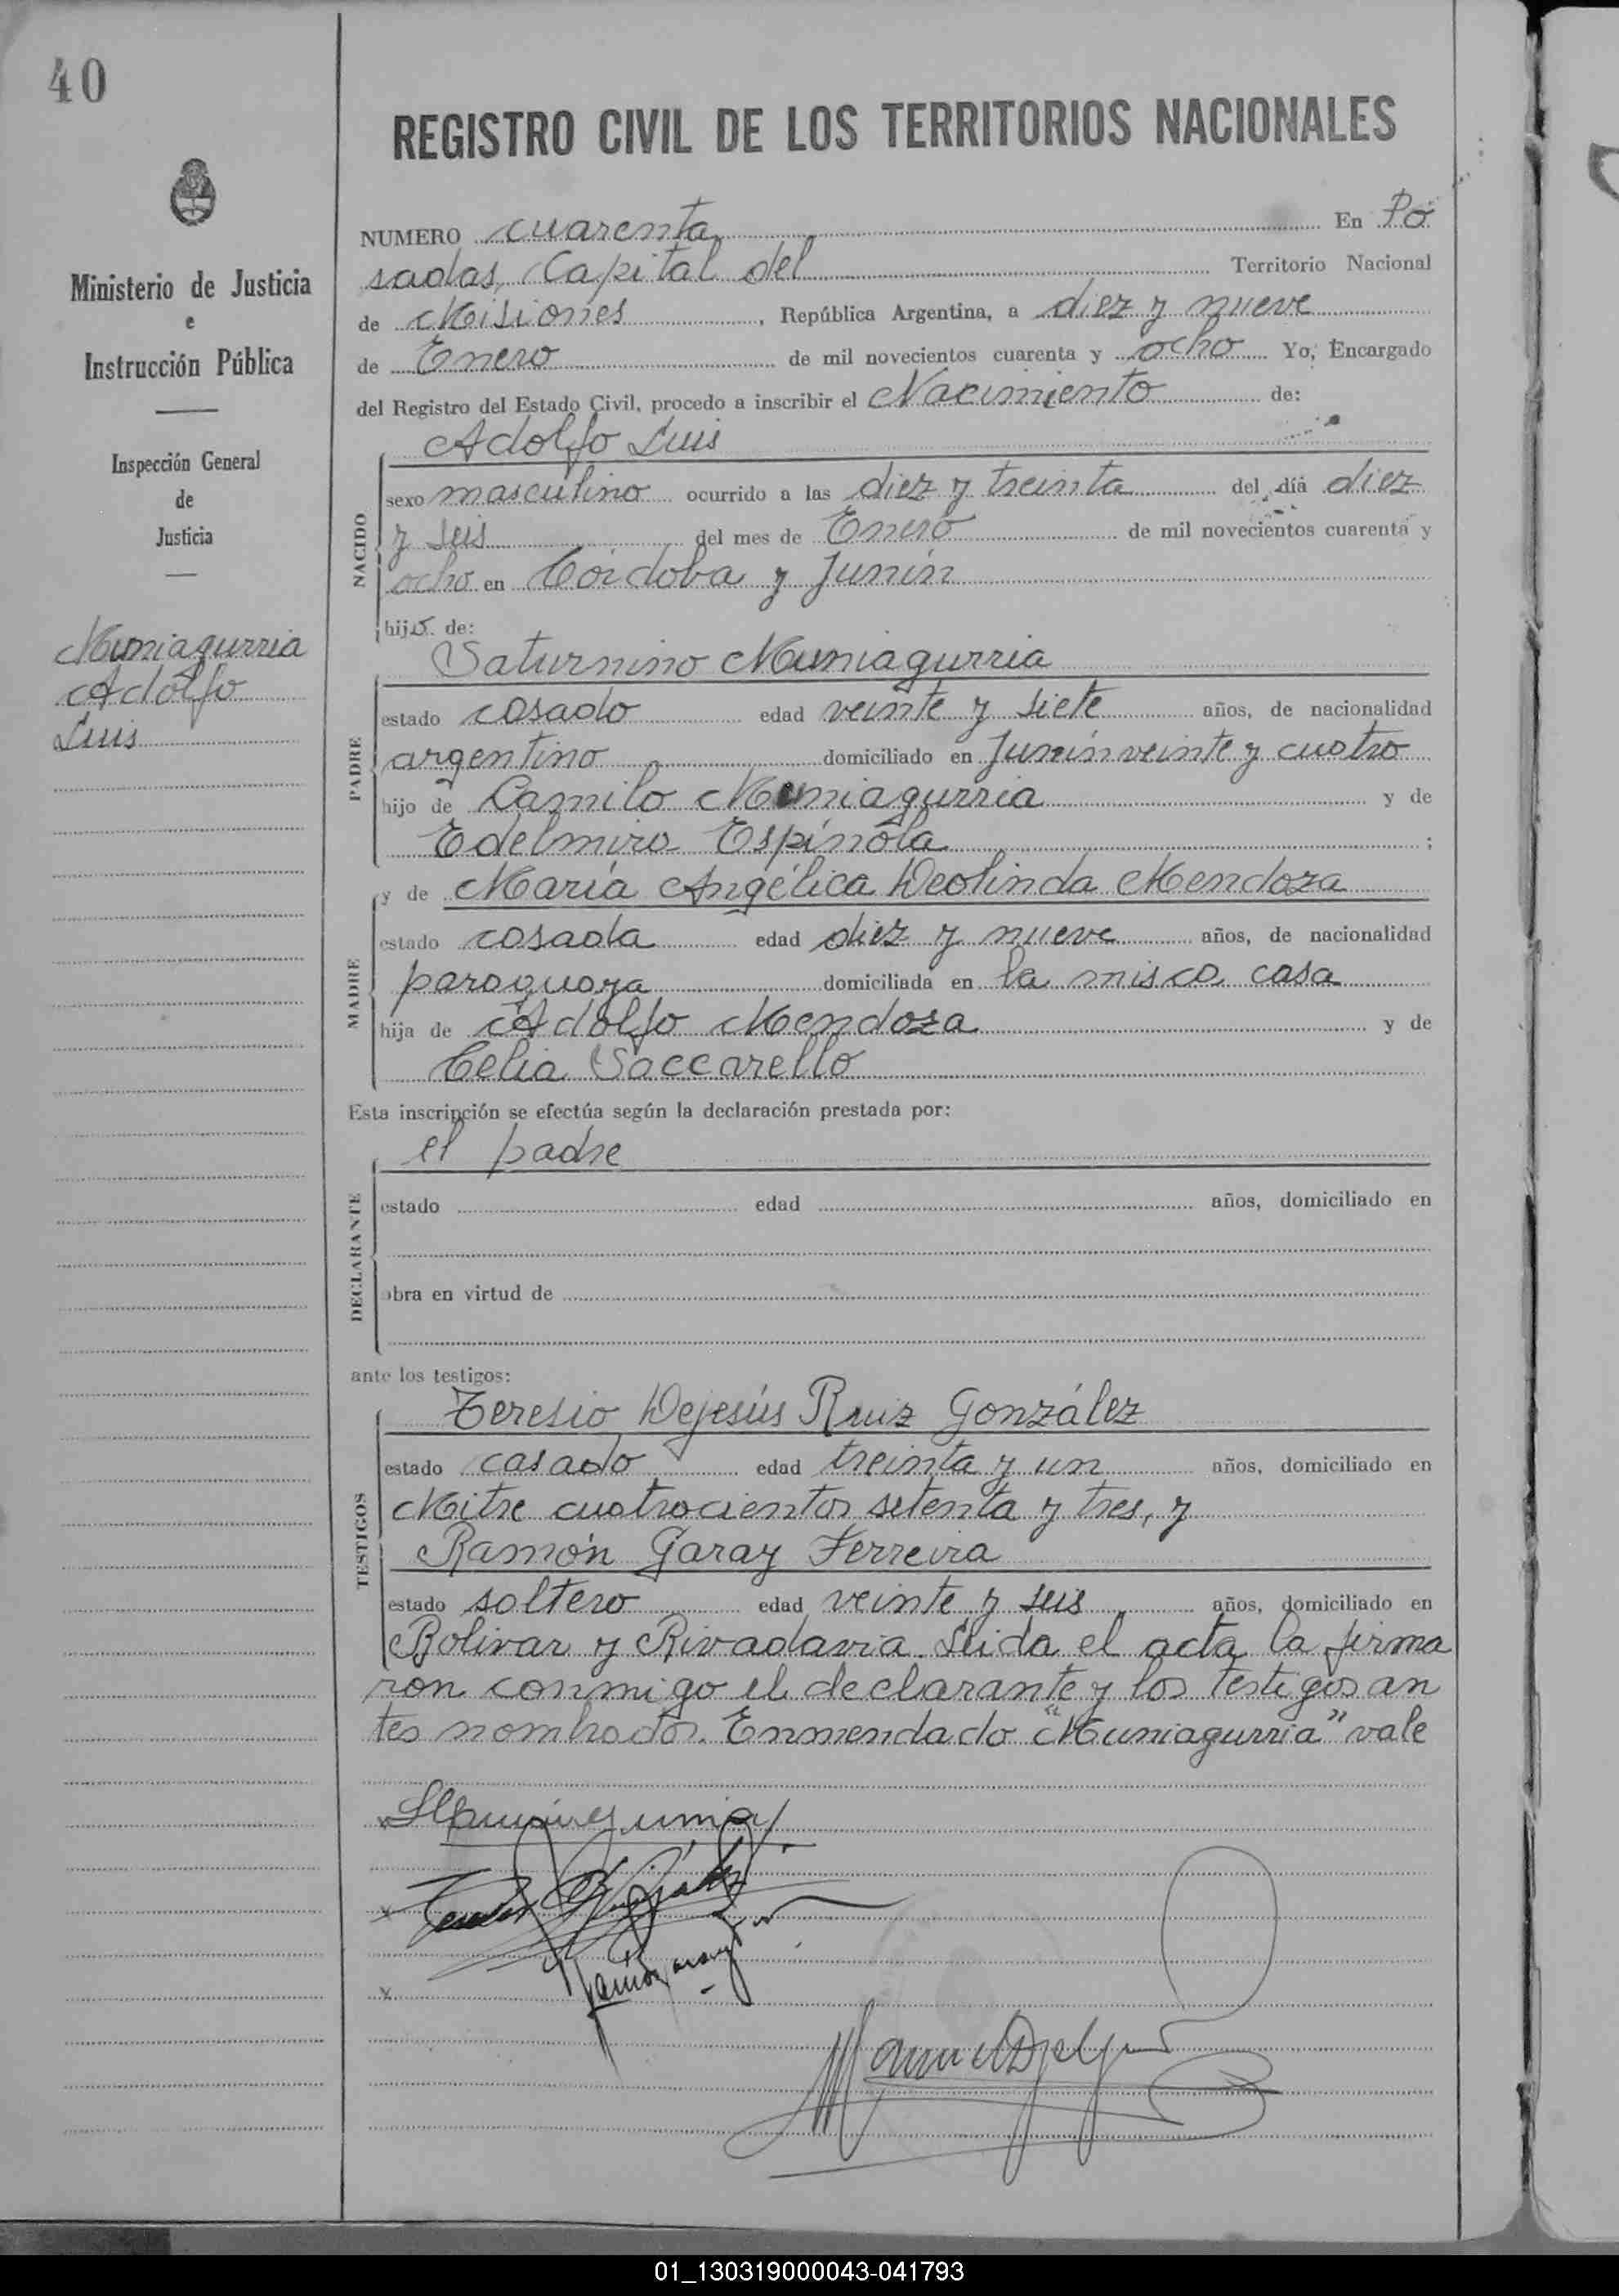 40
REGISTRO CIVIL DE LOS TERRITORIOS NACIONALES
Ministerio de Justicia
e
Instrucción Pública
Inspección General
de
Justicia
Muniagurria
Adolfo
Luis
NUMERO cuarenta En Po
sadas, Capital del Territorio Nacional
de Misiones, República Argentina, a diez y nueve
de Enero de mil novecientos cuarenta y ocho Yo, Encargado
del Registro del Estado Civil, procedo a inscribir el Nacimiento de:
Adolfo Luis
NACIDO
sexo masculino ocurrido a las diez y treinta del día diez
y seis del mes de Enero de mil novecientos cuarenta y
ocho en Córdoba y Junín
hijo de:
Saturnino Muniagurria
PADRE
estado casado edad veinte y siete años, de nacionalidad
argentino domiciliado en Junín veinte y cuatro
hijo de Camilo Muniagurria y de
Edelmira Espínola ;
y de María Angélica Deolinda Mendoza
MADRE
estado casada edad diez y nueve años, de nacionalidad
paraguaya domiciliada en la misca casa
hija de Adolfo Mendoza y de
Celia Saccarello
Esta inscripción se efectúa según la declaración prestada por:
el padre
DECLARANTE
estado edad años, domiciliado en
obra en virtud de
ante los testigos:
Teresio Dejesús Ruiz González
TESTIGOS
estado casado edad treinta y un años, domiciliado en
Mitre cuatrocientos setenta y tres, y
Ramón Garay Ferreira
estado soltero edad veinte y seis años, domiciliado en
Bolivar y Rivadavia. Leida el acta la firma
ron conmigo el declarante y los testigos an
tes nombrados. Enmendado "Muniagurria" vale
01_130319000043-041793